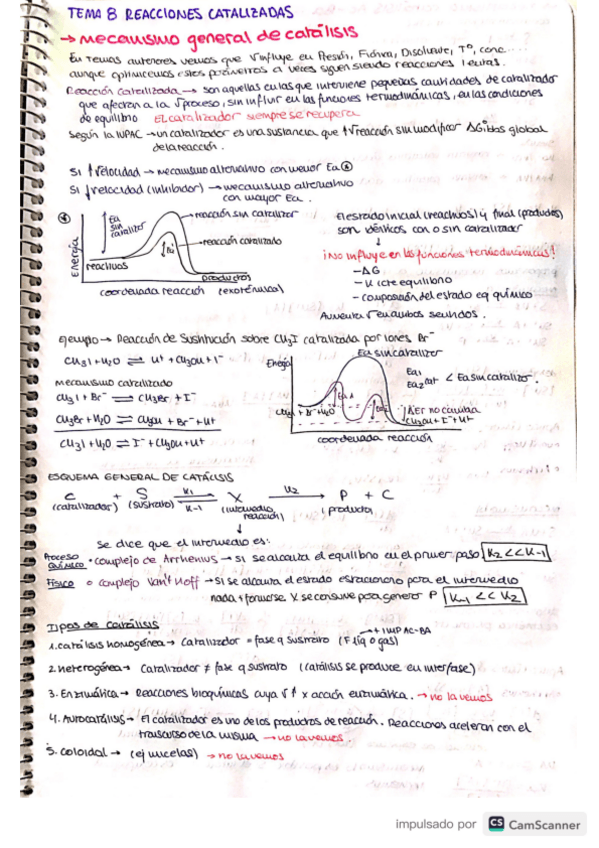 TEMA 8 REACCIONES CATALIZADAS
→ mecanismo general de catálisis
En temas anteriores vemos que v influye en Presión, Fiónica, Disolvente, Tº, conc....
aunque optimicemos estos parámetros a veces siguen siendo reacciones lentas.
Reacción catalizada → son aquellas en las que interviene pequeñas cantidades de catalizador
que afectan a la v proceso, sin influir en las funciones termodinámicas, en las condiciones
de equilibrio EL catalizador siempre se recupera
Según la IUPAC → un catalizador es una sustancia que ↑v reacción sin modificar ΔGibbs global
de la reacción.
SI ↑velocidad → mecanismo alternativo con menor Ea *
SI ↓velocidad (inhibidor) → mecanismo alternativo
con mayor Ea.
*
Energía
Ea
sin
catalizar
Ea
reacción sin catalizar
reacción catalizada
reactivos
Productos
coordenada reacción (exotérmica)
El estado inicial (reactivos) y final (productos)
son idénticos con o sin catalizador
↓
¡No influye en las funciones termodinámicas!
- ΔG
- K cte equilibrio
- composición del estado eq químico
Aumenta v en ambos sentidos.
Ejemplo → Reacción de Sustitución sobre CH3I catalizada por iones Br⁻
CH3I + H2O ⇌ H⁺ + CH3OH + I⁻
mecanismo catalizado
CH3I + Br⁻ ⇌ CH3Br + I⁻
CH3Br + H2O ⇌ CH3OH + Br⁻ + H⁺
CH3I + H2O ⇌ I⁻ + CH3OH + H⁺
Energía
Ea sin catalizar
Ea1
Ea2
CH3I + Br⁻ + H2O
ΔEr no cambia
CH3OH + I⁻ + H⁺
coordenada reacción
Ea1
Ea2 cat < Ea sin catalizar.
ESQUEMA GENERAL DE CATÁLISIS
C + S ⇌ X → P + C
K1
K-1
K2
(catalizador) (sustrato) (intermedio reacción) (producto)
↓
Se dice que el intermedio es:
Proceso Químico • complejo de Arrhenius → si se alcanza el equilibrio en el primer paso K2 << K-1
Físico o complejo Van't Hoff → Si se alcanza el estado estacionario para el intermedio
nada + formarse X se consume para generar P K-1 << K2
Tipos de catálisis
→ + IMP AC-BA
1. catálisis homogénea → Catalizador = fase q sustrato (F líq o gas)
2. Heterogénea → Catalizador ≠ fase q sustrato (catálisis se produce en interfase)
3. Enzimática → Reacciones bioquímicas cuya v ↑ x acción enzimática. → no la vemos
4. Autocatálisis → El catalizador es uno de los productos de reacción. Reacciones aceleran con el
transcurso de la misma → no la vemos.
5. Coloidal → (ej micelas) → no la vemos
impulsado por CS CamScanner